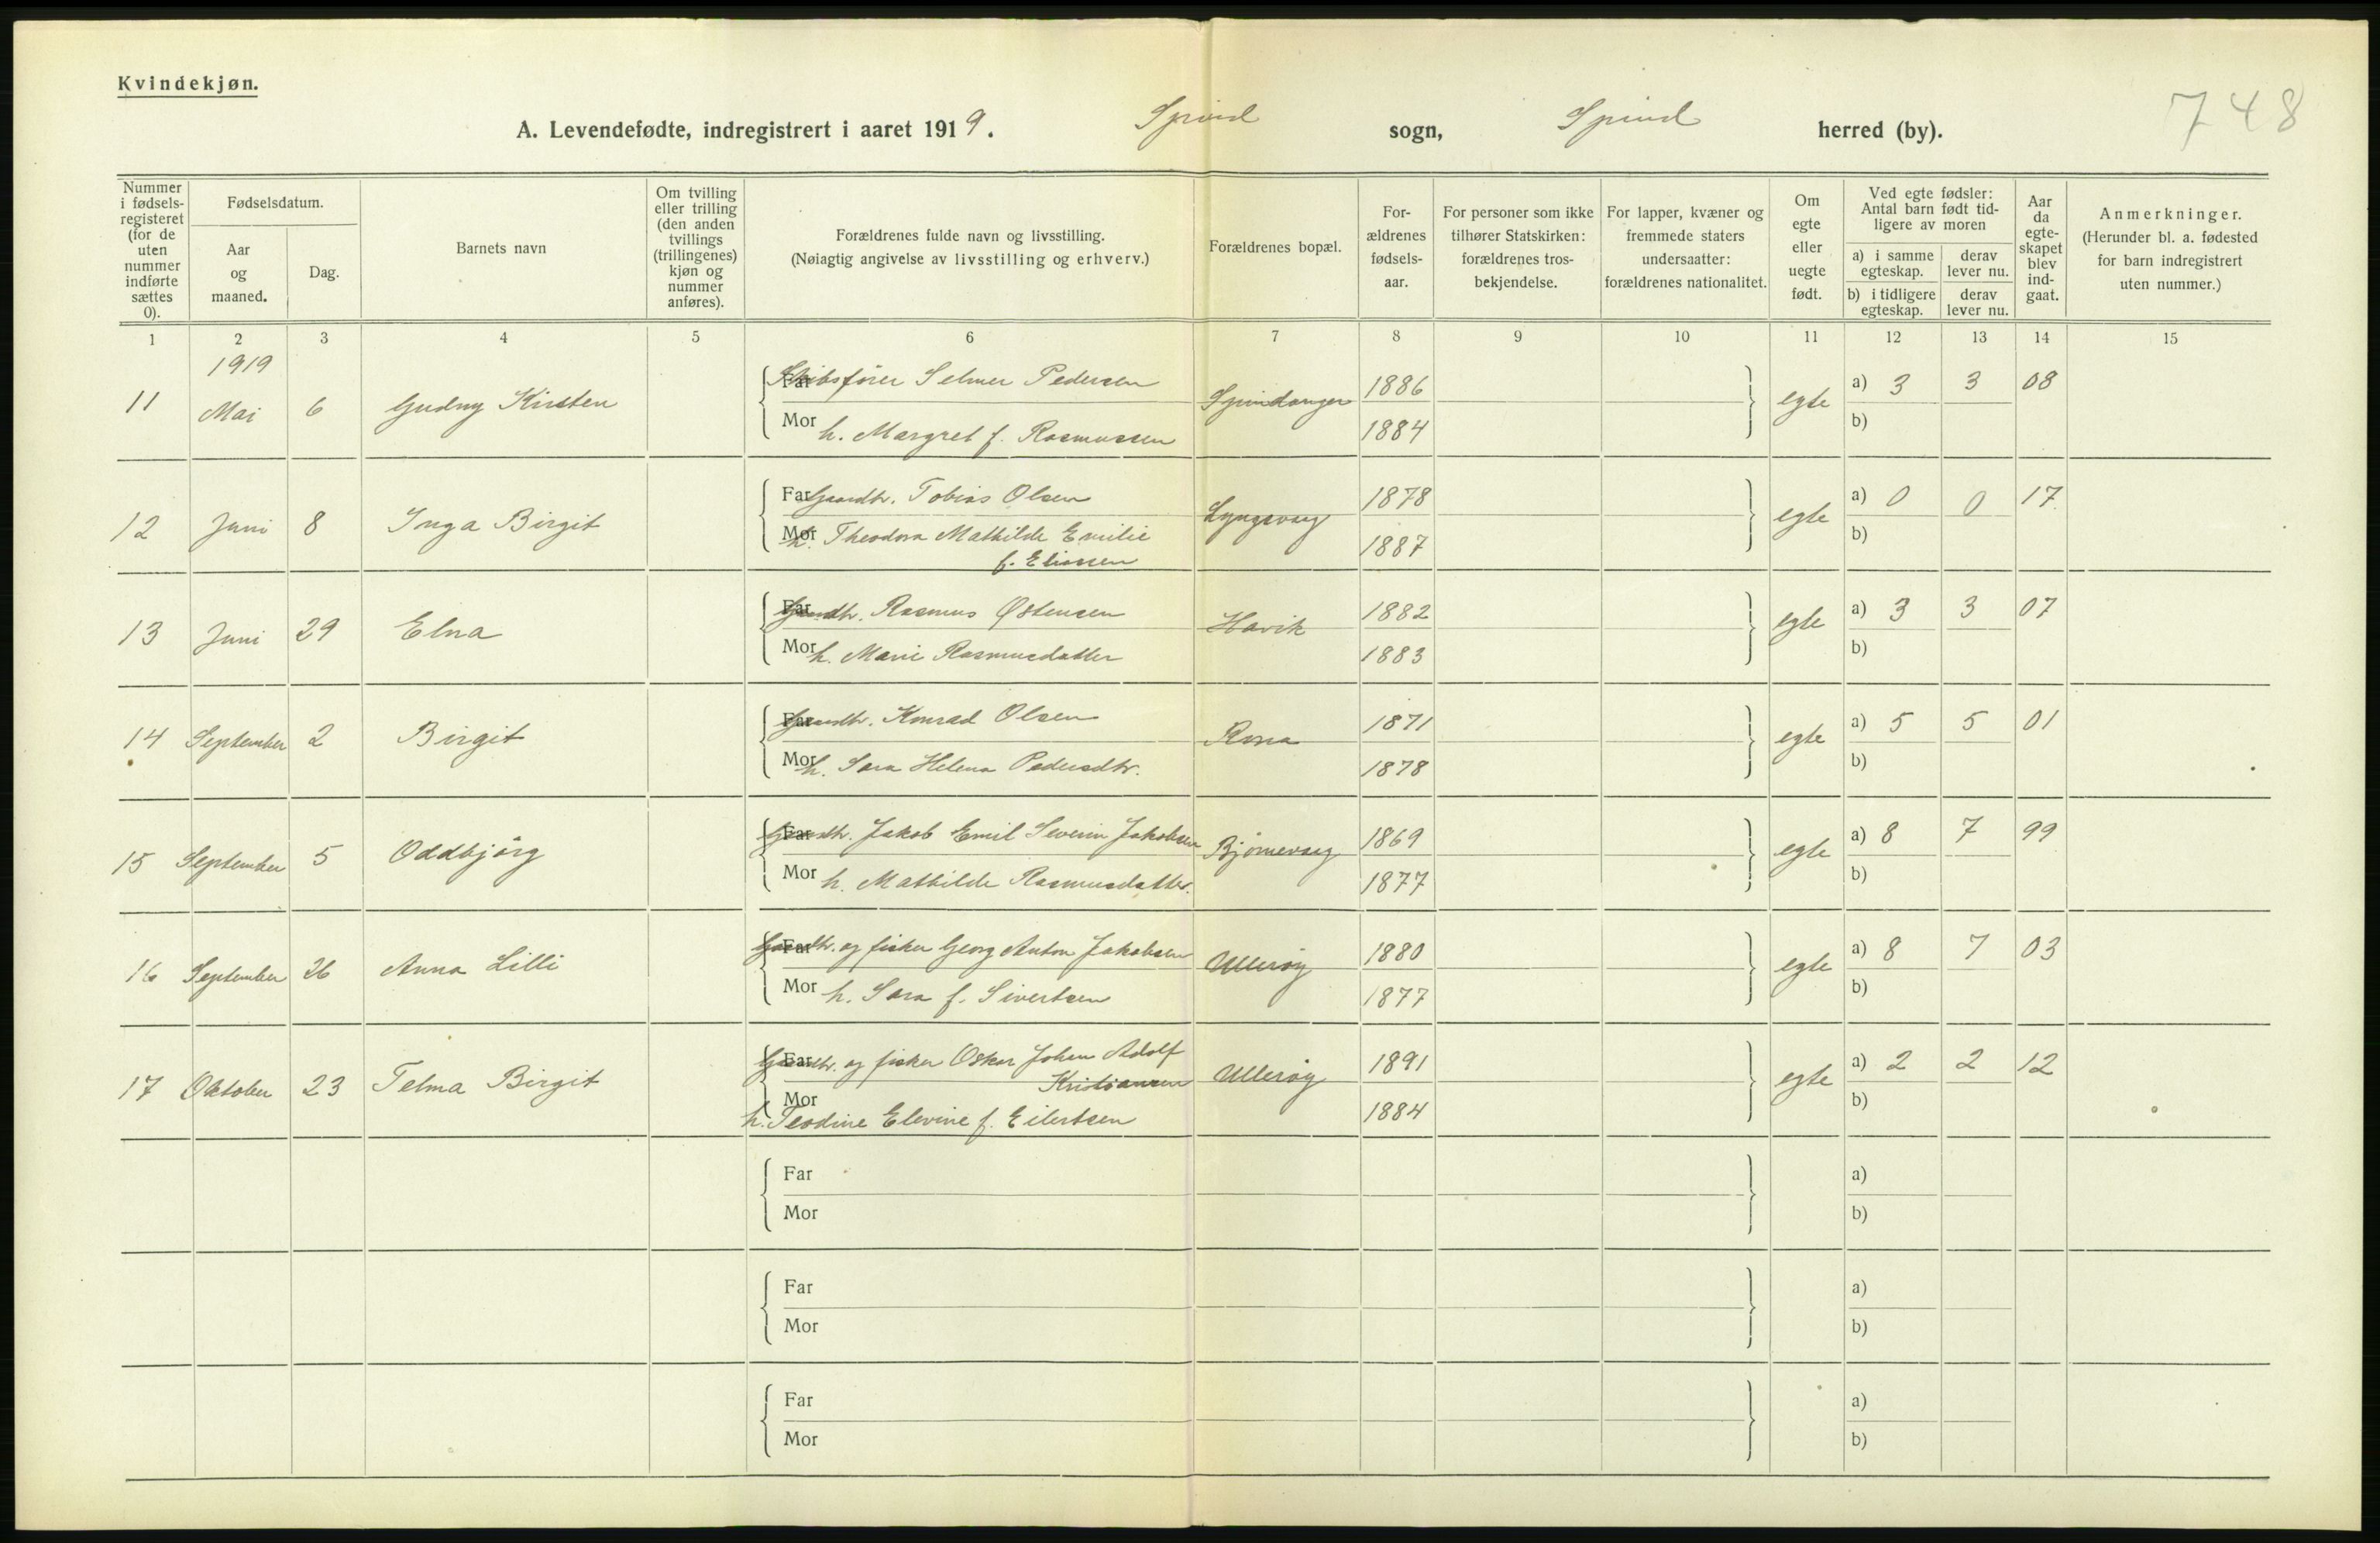 Kvindekjøn.
748
A. Levendefødte, indregistrert i aaret 1919. Spind sogn, Spind herred (by).
Nummer i fødsels-registeret (for de uten nummer indførte sættes 0).
Fødselsdatum.
Aar og maaned.
Dag.
Barnets navn
Om tvilling eller trilling (den anden tvillings (trillingenes) kjøn og nummer anføres).
Forældrenes fulde navn og livsstilling.
(Nøiagtig angivelse av livsstilling og erhverv.)
Forældrenes bopæl.
For-ældrenes fødsels-aar.
For personer som ikke tilhører Statskirken: forældrenes tros-bekjendelse.
For lapper, kvæner og fremmede staters undersaatter: forældrenes nationalitet.
Om egte eller uegte født.
Ved egte fødsler: Antal barn født tid-ligere av moren
a) i samme egteskap.
derav lever nu.
b) i tidligere egteskap.
derav lever nu.
Aar da egte-skapet blev ind-gaat.
Anmerkninger.
(Herunder bl. a. fødested for barn indregistrert uten nummer.)
1 2 3 4 5 6 7 8 9 10 11 12 13 14 15
1919
11 Mai 6 Gudny Kirsten
Far Skibsfører Selmer Pedersen Spindanger 1886 egte a) 3 3 08
Mor h. Margret f. Rasmussen 1884 b)
12 Juni 8 Inga Birgit
Far Gaardbr. Tobias Olsen Lyngsvaag 1878 egte a) 0 0 17
Mor h. Theodora Mathilde Emilie 1887 b)
f. Eliassen
13 Juni 29 Elna
Far Gaardbr. Rasmus Østensen Havik 1882 egte a) 3 3 07
Mor h. Marie Rasmusdatter 1883 b)
14 September 2 Birgit
Far Gaardbr. Konrad Olsen Rosa 1871 egte a) 5 5 01
Mor h. Sara Helena Pedersdtr. 1878 b)
15 September 5 Oddbjørg
Far Gaardbr. Jakob Emil Severin Jakobsen Bjørnevaag 1869 egte a) 8 7 99
Mor h. Mathilde Rasmusdatter. 1877 b)
16 September 26 Anna Lilli
Far Gaardbr. og fisker Georg Anton Jakobsen Ullerøy 1880 egte a) 8 7 03
Mor h. Sara f. Sivertsen 1877 b)
17 Oktober 23 Telma Birgit
Far Gaardbr. og fisker Oskar Johan Adolf Ullerøy 1891 egte a) 2 2 12
Kristiansen
Mor 1884 b)
h. Teodine Elevine f. Eilertsen
Far a)
Mor b)
Far a)
Mor b)
Far a)
Mor b)